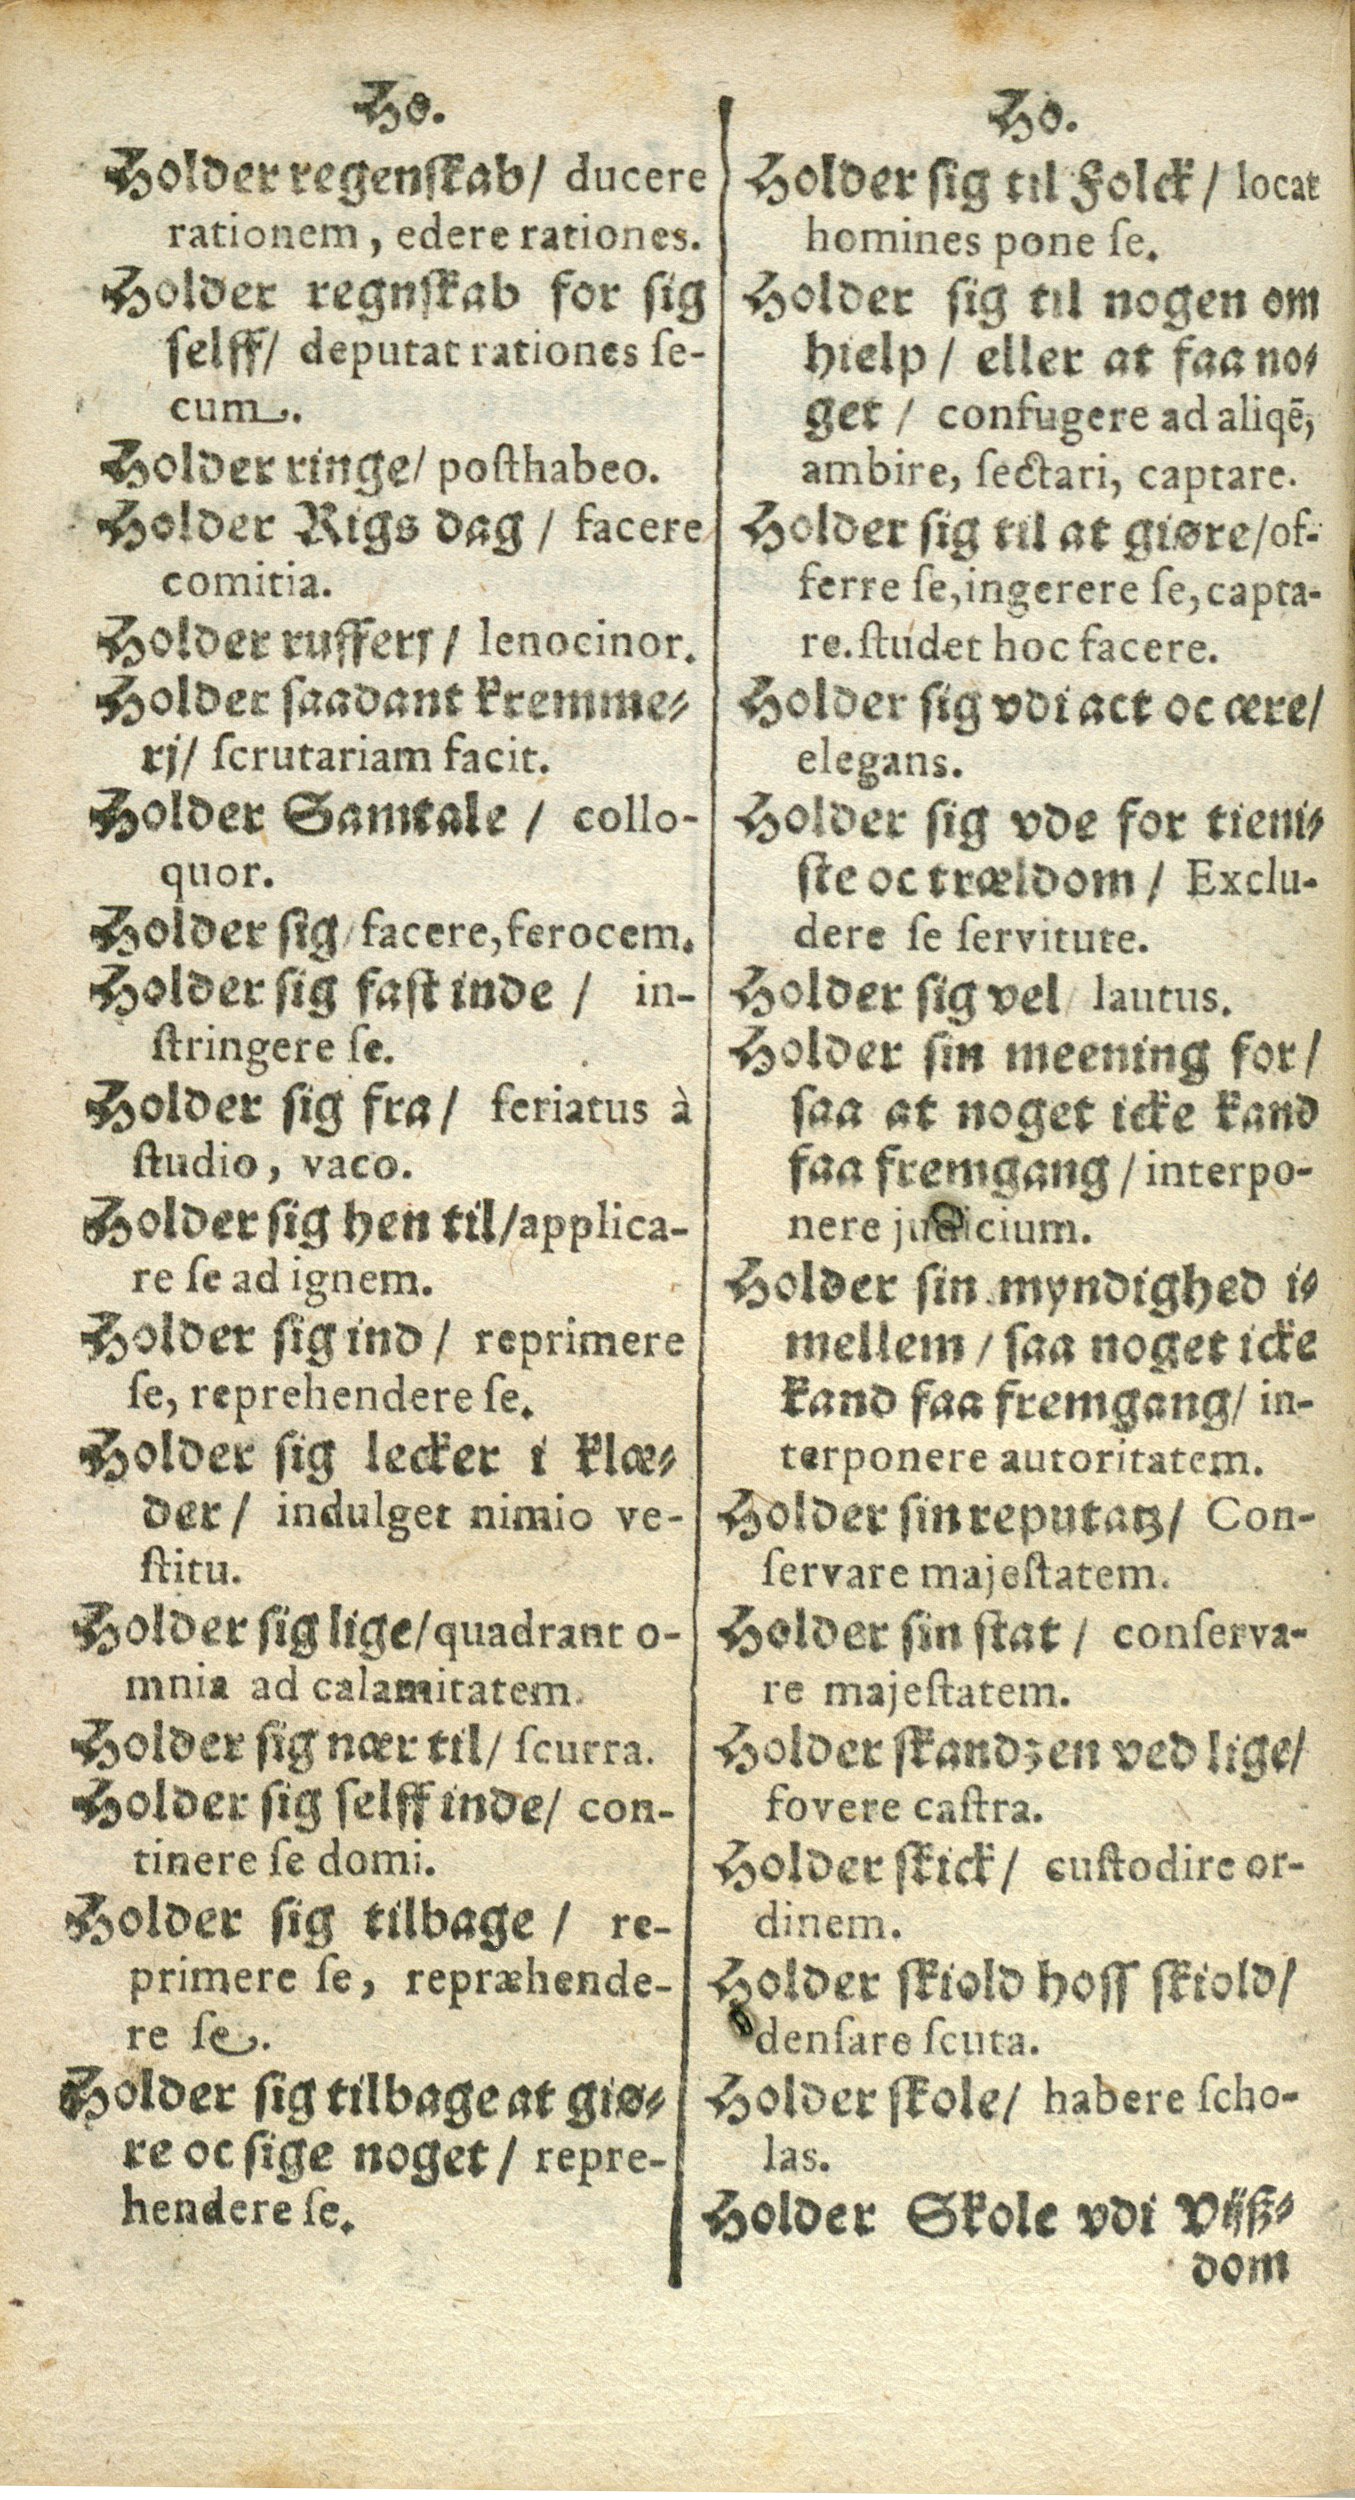 Ho.
Holder regenſkab/ ducere
rationem, edere rationes.
Holder regnſkab for ſig
ſelff/ deputat rationes ſe-
cum.
Holder ringe/ poſthabeo.
Holder Rigs dag / facere
comitia.
Holder rufferj / lenocinor.
Holder ſaadant kremme-
rj/ ſcrutariam facit.
Holder Samtale / collo-
quor.
Holder ſig/ facere, ferocem.
Holder ſig faſt inde / in-
ſtringere ſe.
Holder ſig fra/ feriatus à
ſtudio, vaco.
Holder ſig hen til/applica-
re ſe ad ignem.
Holder ſig ind / reprimere
ſe, reprehendere ſe.
Holder ſig lecker i klæ-
der/ indulget nimio ve-
ſtitu.
Holder ſig lige/quadrant o-
mnia ad calamitatem.
Holder ſig nær til/ ſcurra.
Holder ſig ſelff inde/ con-
tinere ſe domi.
Holder ſig tilbage / re-
primere ſe, repræhende-
re ſe.
Holder ſig tilbage at giø-
re oc ſige noget / repre-
hendere ſe.
Ho.
Holder ſig til Folck / locat
homines pone ſe.
Holder ſig til nogen om
hielp / eller at faa no-
get / confugere ad aliqē,
ambire, ſectari, captare.
Holder ſig til at giøre/of-
ferre ſe, ingerere ſe, capta-
re. ſtudet hoc facere.
Holder ſig vdi act oc ære/
elegans.
Holder ſig vde for tieni-
ſte oc trældom / Exclu-
dere ſe ſervitute.
Holder ſig vel/ lautus.
Holder ſin meening for/
ſaa at noget icke kand
faa fremgang / interpo-
nere judicium.
Holder ſin myndighed i-
mellem / ſaa noget icke
kand faa fremgang/ in-
terponere autoritatem.
Holder ſin reputatz/ Con-
ſervare majeſtatem.
Holder ſin ſtat / conſerva-
re majeſtatem.
Holder ſkandzen ved lige/
fovere caſtra.
Holder ſkick / cuſtodire or-
dinem.
Holder ſkiold hoſſ ſkiold/
denſare ſcuta.
Holder ſkole/ habere ſcho-
las.
Holder Skole vdi Vijß-
dom